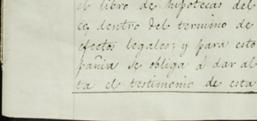 el libro de hipotecas del
ce, dentro del termino de
efectos legales; y para esto
pañia se obliga á dar al
ta el testimonio de esta